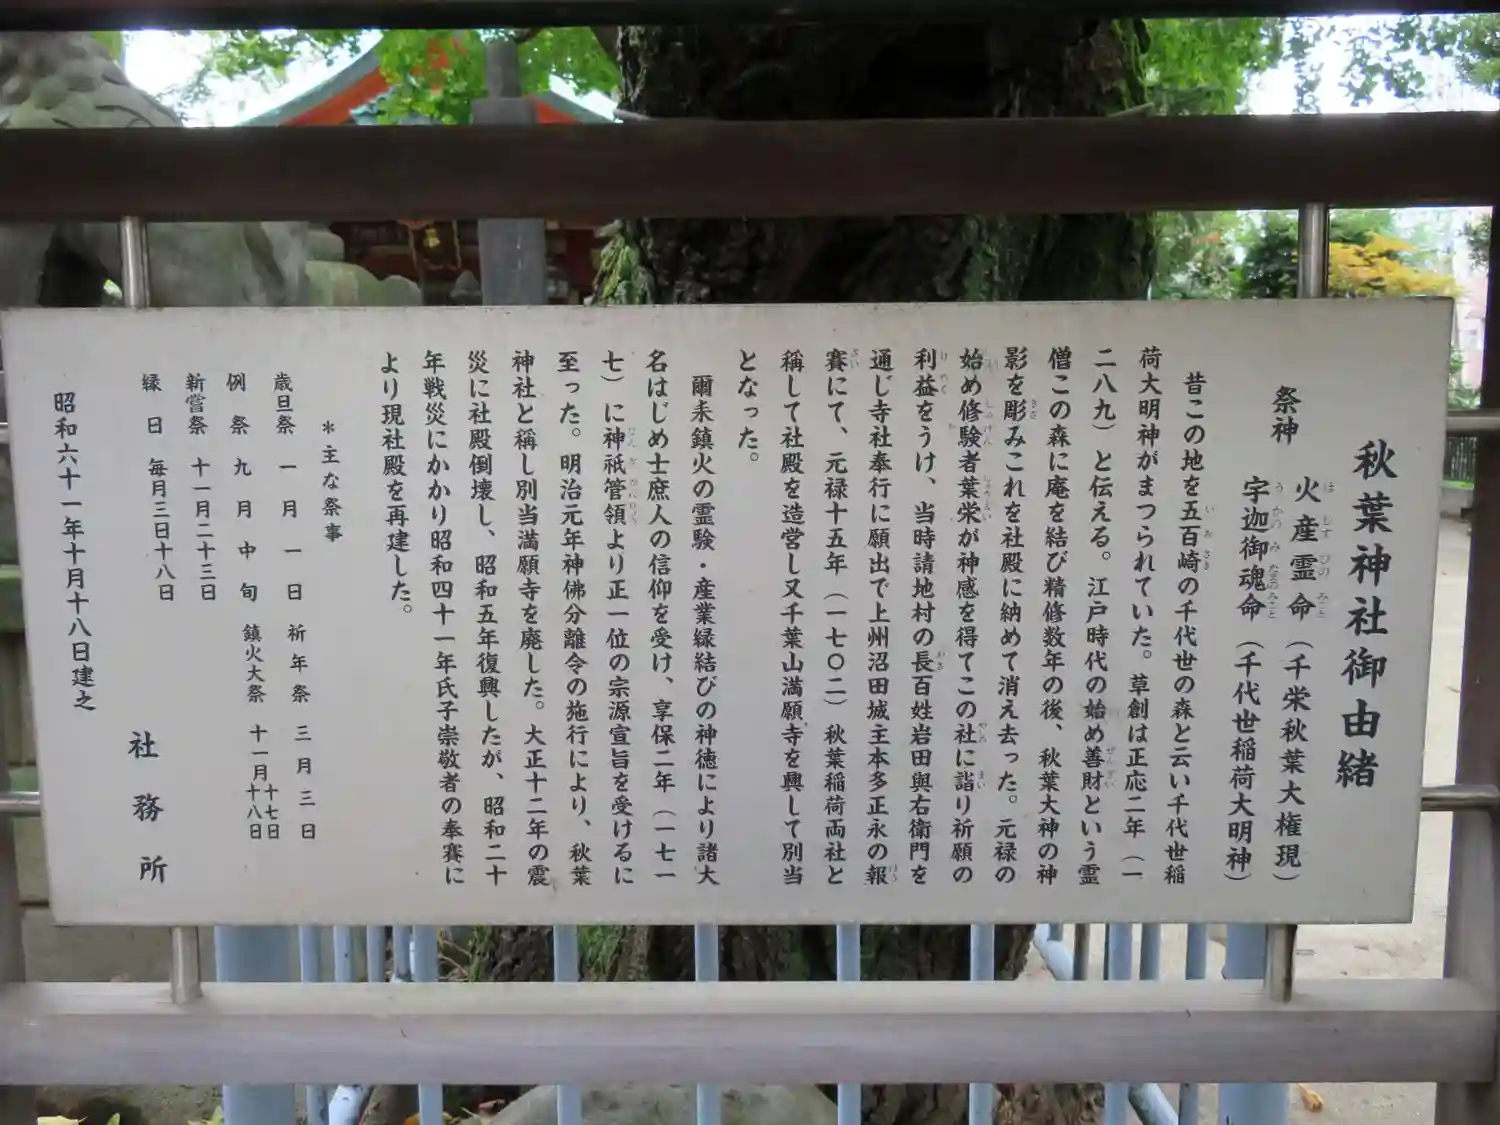 秋葉神社御由緒
祭神 火産霊命（千栄秋葉大権現）
宇迦御魂命（千代世稲荷大明神）
昔この地を五百崎の千代世の森と云い千代世稲
荷大明神がまつられていた。草創は正応二年（一
二八九）と伝える。江戸時代の始め善財という霊
僧この森に庵を結び精修数年の後、秋葉大神の神
影を彫みこれを社殿に納めて消え去った。元禄の
始め修験者葉栄が神感を得てこの社に詣り祈願の
利益をうけ、当時請地村の長百姓岩田與右衛門を
通じ寺社奉行に願出で上州沼田城主本多正永の報
賽にて、元禄十五年（一七〇二）秋葉稲荷両社と
稱して社殿を造営し又千葉山満願寺を興して別当
となった。
爾来鎮火の霊験・産業縁結びの神徳により諸大
名はじめ士庶人の信仰を受け、享保二年（一七一
七）に神祇管領より正一位の宗源宣旨を受けるに
至った。明治元年神佛分離令の施行により、秋葉
神社と稱し別当満願寺を廃した。大正十二年の震
災に社殿倒壊し、昭和五年復興したが、昭和二十
年戦災にかかり昭和四十一年氏子崇敬者の奉賽に
より現社殿を再建した。
＊主な祭事
歳旦祭 一月一日 祈年祭 三月三日
例祭 九月中旬 鎮火大祭 十一月十七日十八日
新嘗祭 十一月二十三日
縁日 毎月三日十八日
社務所
昭和六十一年十月十八日建之